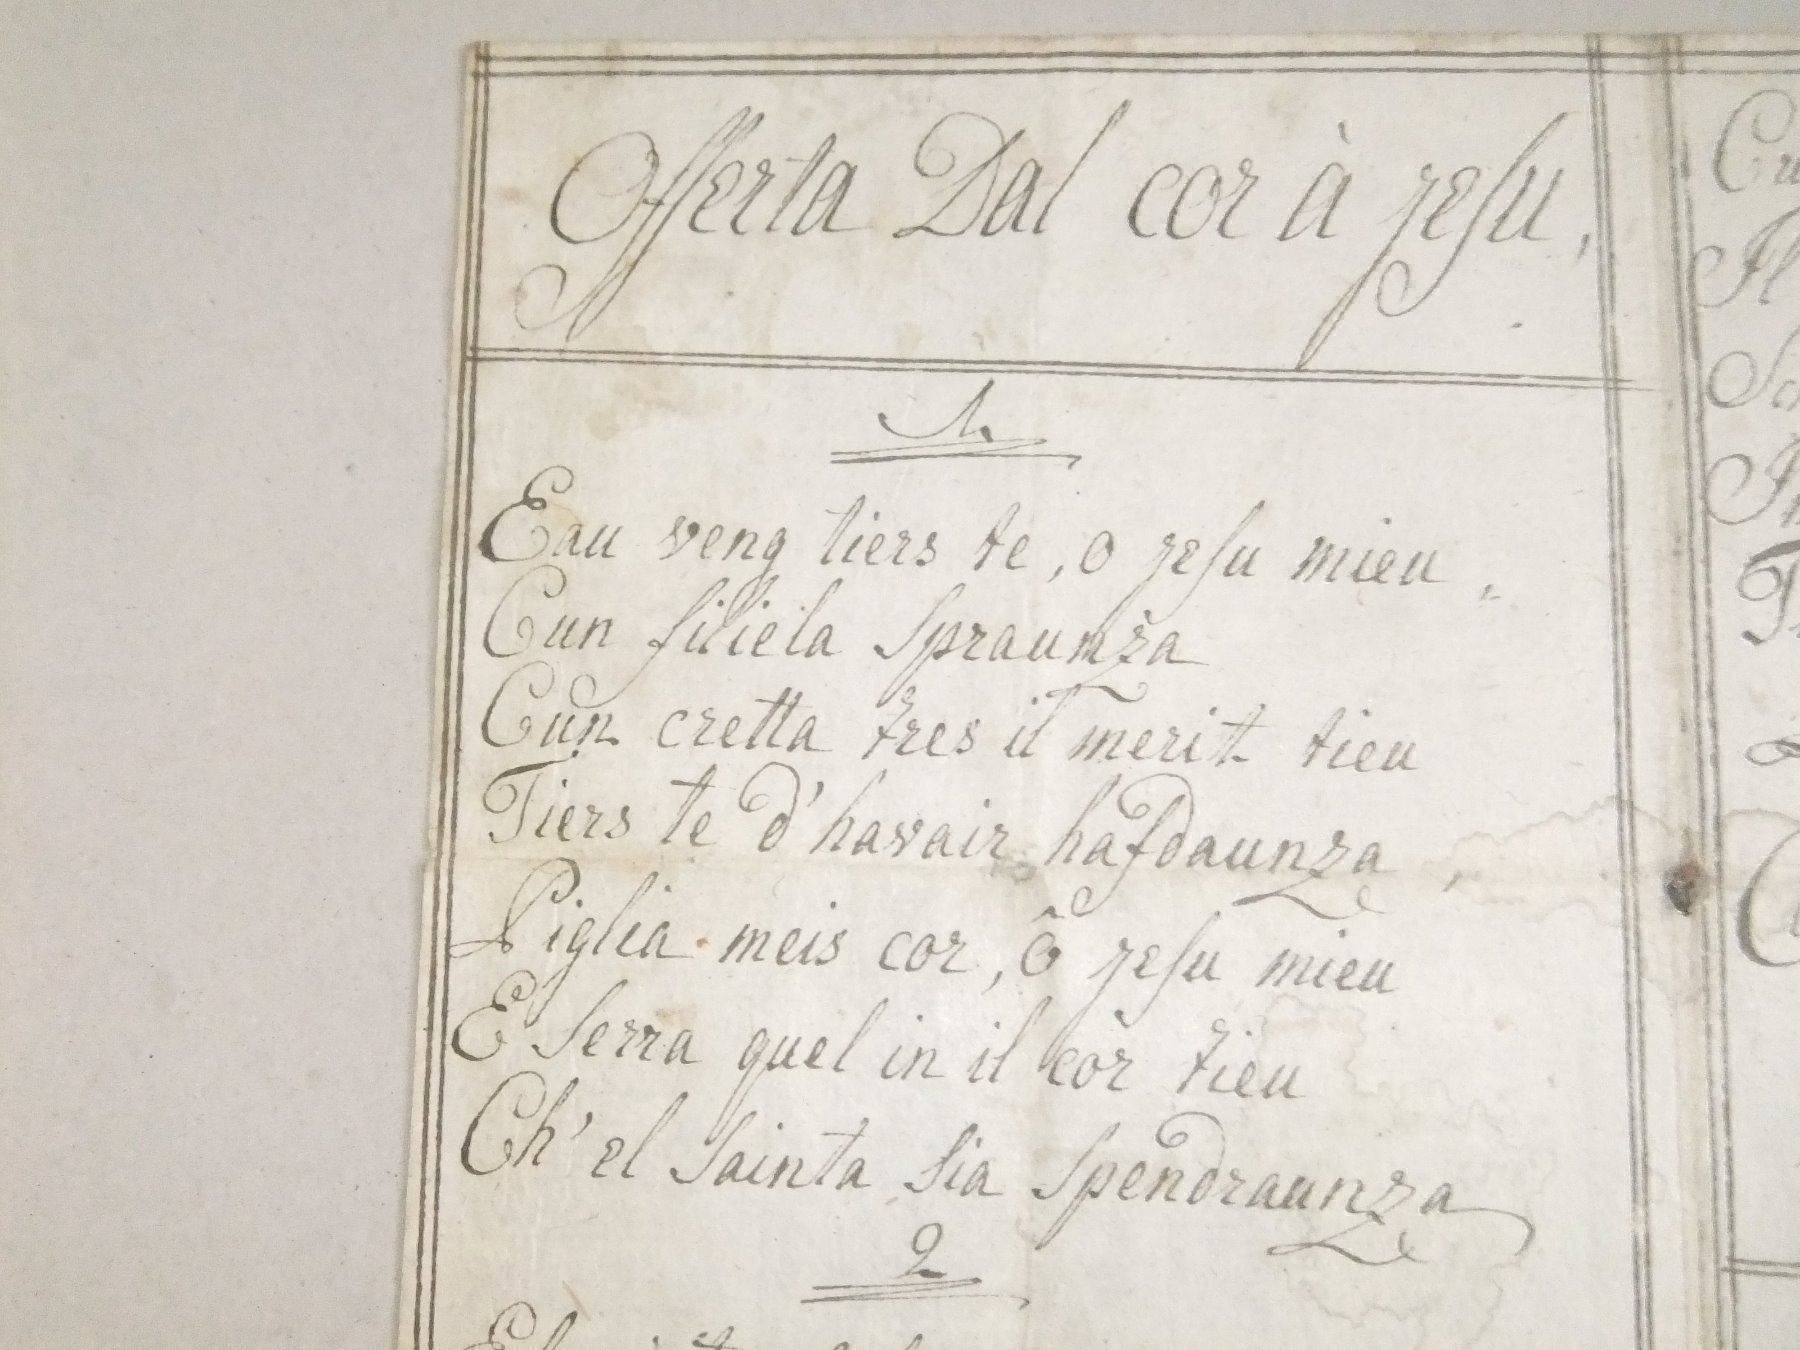 Offerta Dal cor à Jesu,
1.
Eau veng tiers te, o Jesu mieu,
Cun filiela spraunza
Cun cretta tres il merit tieu
Tiers te d'havair hafdaunza,
Piglia meis cor, ô Jesu mieu
E serra quel in il cor tieu
Ch'el sainta sia spendraunza
2